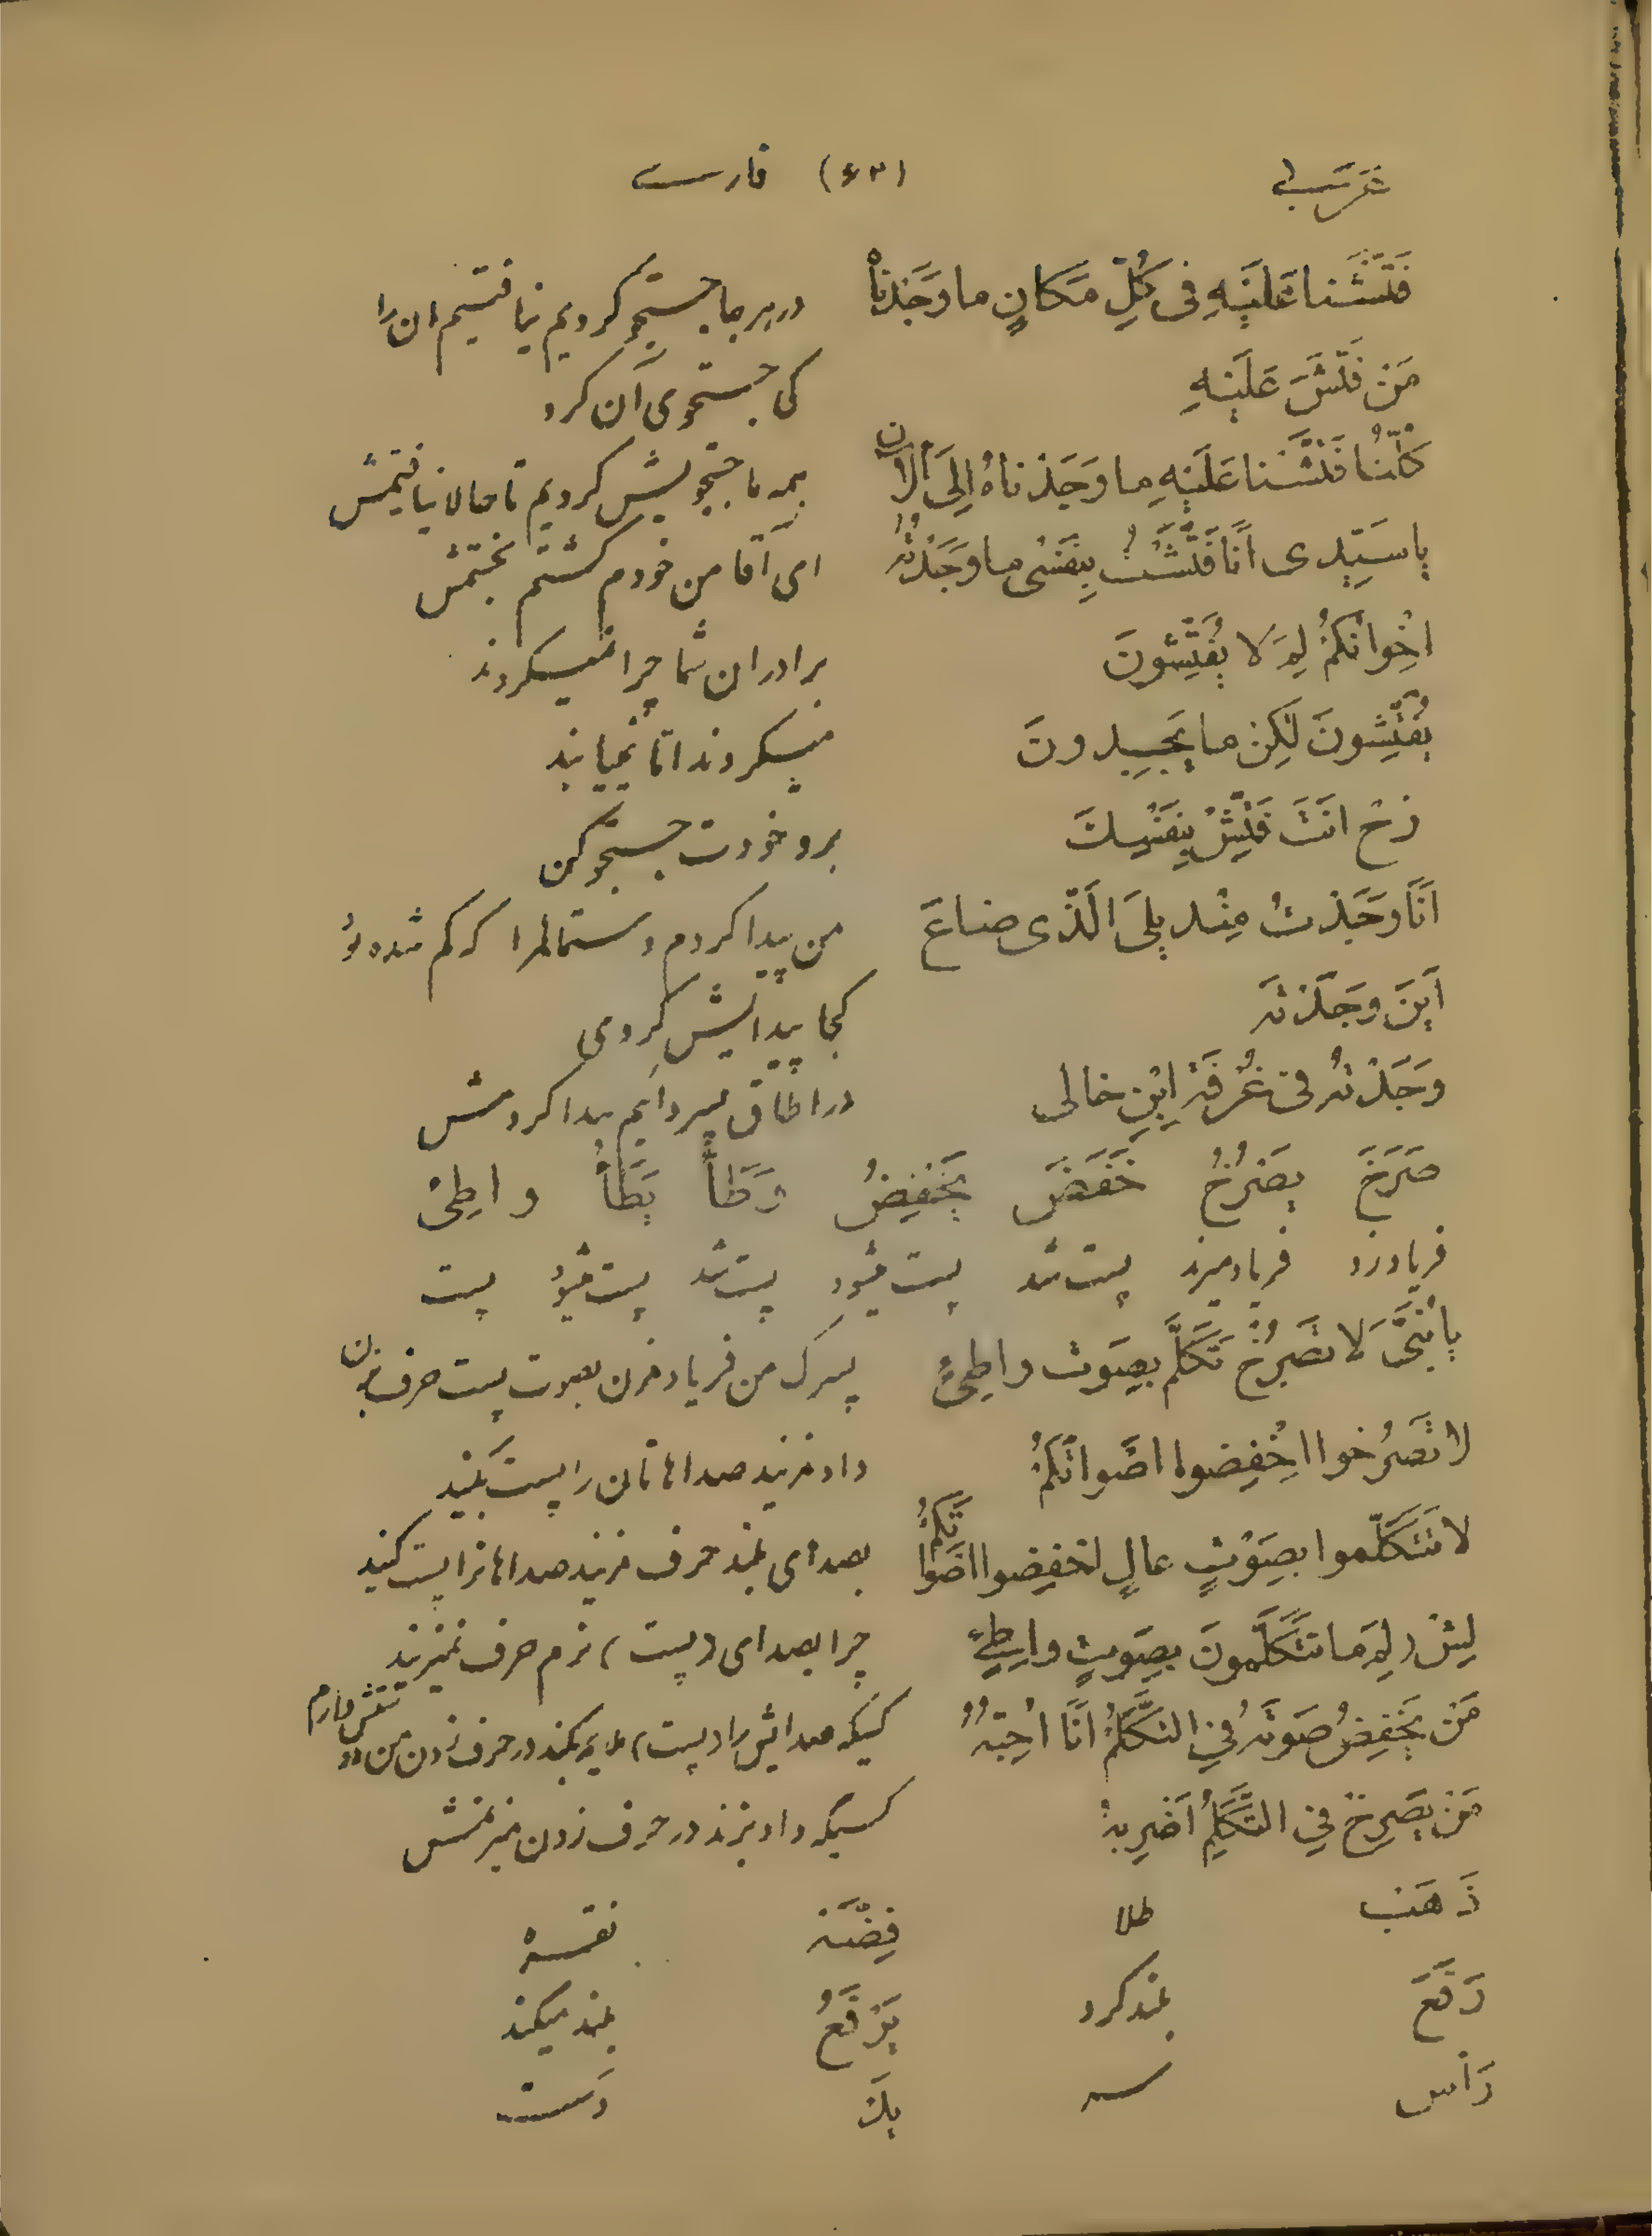 عَرَبی (۶۳) فارسی
فَتَّشْنا عَلَیْهِ فی کُلِّ مَکانٍ ما وَجَدْناهُ در هر جا جستجو کردیم نیافتیم ان را
مَنْ فَتَّشَ عَلَیْهِ کی جستجوی آن کرد
کُلُّنا فَتَّشْنا عَلَیْهِ ما وَجَدْناهُ اِلَی الْاٰن همه ما جستجویش کردیم تا حالا نیافتیمش
یا سَیِّدی اَنَا فَتَّشْتُ بِنَفْسی ما وَجَدْتُهُ ای آقا من خودم گشتم نجستمش
اِخْوانُکُمْ لِمَ لا یُفَتِّشونَ برادران شما چرا نمیگردند
یُفَتِّشونَ لٰکِنْ ما یَجِدونَ میگردند امّا نمییابند
رُحْ اَنْتَ فَتِّشْ بِنَفْسِکَ برو خودت جستجو کن
اَنَا وَجَدْتُ مِنْدیلَی الَّذی ضاعَ من پیدا کردم دستمالمرا که گم شده بود
اَیْنَ وَجَدْتَهُ کجا پیدایش کردی
وَجَدْتُهُ فی غُرْفَةِ ابْنِ خالی در اطاق پسر دائیم پیدا کردمش
صَرَخَ یَصْرُخُ خَفَضَ یَخْفِضُ وَطَأَ یَطَأُ واطِئ
فریاد زد فریاد میزند پست شد پست میشود پست شد پست میشود پست
یا بُنَیَّ لا تَصْرُخْ تَکَلَّمْ بِصَوْت واطِئٍ پسرک من فریاد مزن بصوت پست حرف بزن
لا تَصْرُخوا اِخْفِضوا اَصْواتَکُمْ داد مزنید صداهاتان را پست کنید
لا تَتَکَلَّموا بِصَوْتٍ عالٍ اخْفِضوا اَصْواتَکُمْ بصدای بلند حرف مزنید صداهاترا پست کنید
لِیْش (لِمَ ما تَتَکَلَّمونَ بِصَوْتٍ واطِئٍ چرا بصدای (پست) نرم حرف نمیزنند
مَنْ یَخْفِضُ صَوْتَهُ فِی التَّکَلُّمِ اَنَا اُحِبُّهُ کسیکه صدایش را (پست) ملایم بکند در حرف زدن من دوستش دارم
مَنْ یَصْرِخْ فِی التَّکَلُّمِ اَضْرِبهُ کسیکه داد بزند در حرف زدن میزنمش
ذَهَب طلا فِضَّة نقره
رَفَعَ بلند کرد یَرْفَعُ بلند میکند
رَأس سر یَد دست